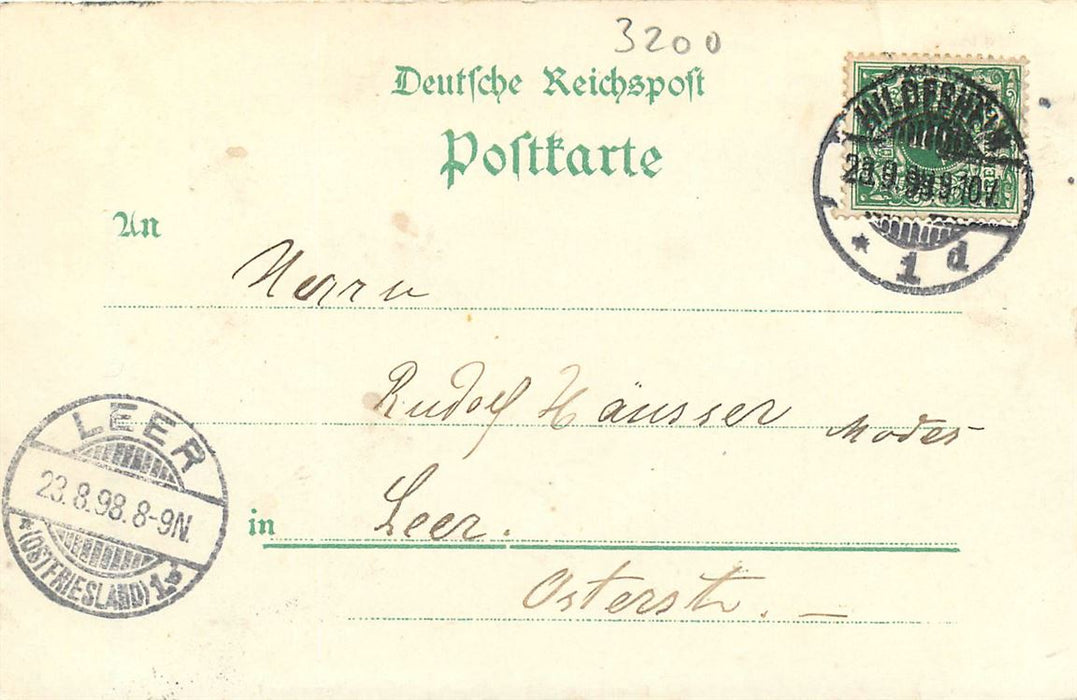 3200
Deutsche Reichspost
Postkarte
HILDESHEIM
9-10V.
* 1 d
An
Herrn
Rudolf Häusser Modes
LEER
23.8.98.8-9N.
*(OSTFRIESLAND)1b
in Leer.
Osterstr. —